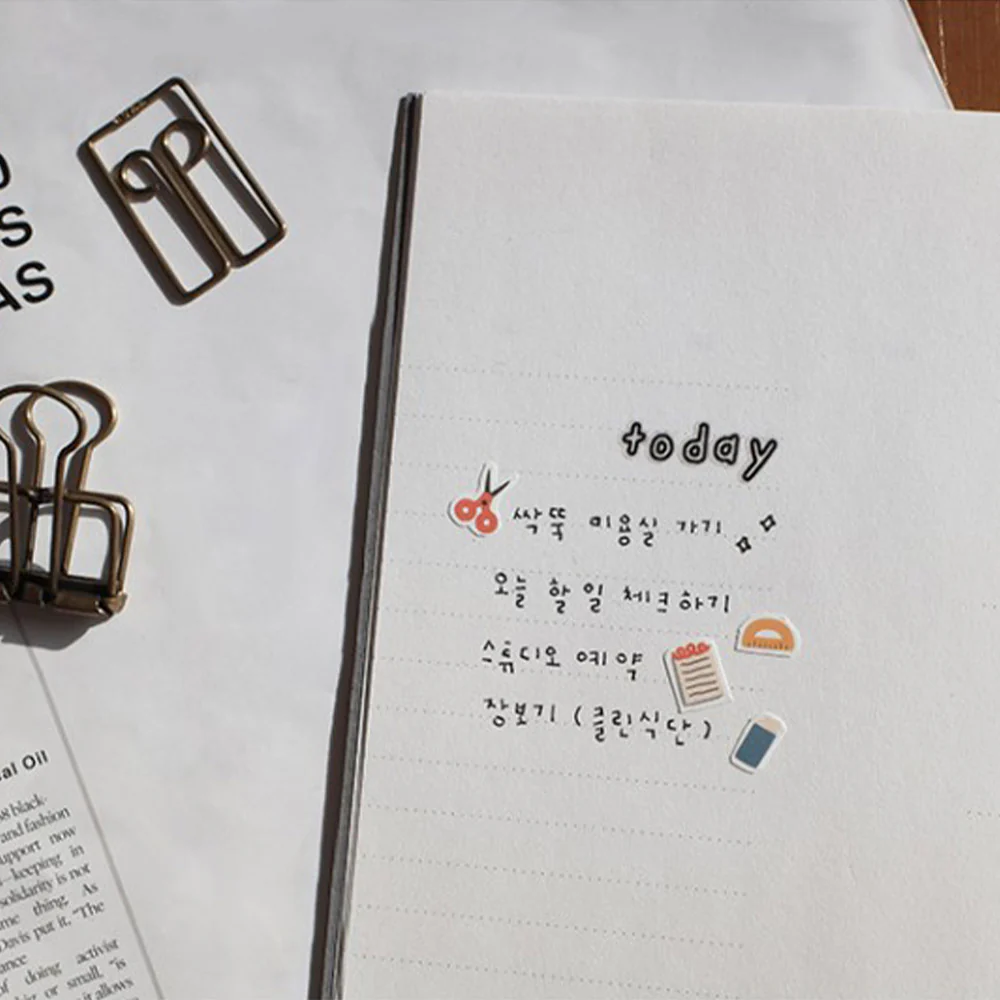 S
AS
today
싹뚝 미용실 가기
오늘 할 일 체크하기
스튜디오 예약
장보기 (클린식단)
al Oil
black-
and fashion
support now
keeping in
solidarity is not
thing. As
Davis put it, "The
of doing activist
or small, "is
it allows